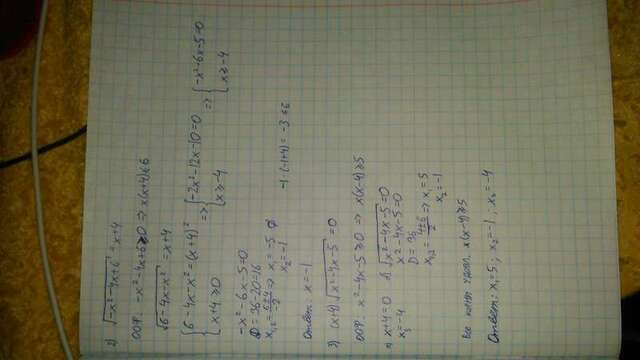 2) √(-x²-4x+6) = x+4
ООФ: -x²-4x+6≥0 ⇒ x(x+4)≤6
√(6-4x-x²) = x+4
{6-4x-x²=(x+4)² ⇒ {-2x²-12x-10=0 ⇒ {-x²-6x-5=0
x+4≥0 x≥-4 x≥-4
-x²-6x-5=0
D=36-20=16
x₁,₂=(6±4)/-2 ⇒ x₁=-5 ∅
x₂=-1 -1·(-1+4)=-3≤6
Ответ: x=-1
3) (x+4)√(x²-4x-5)=0
ООФ: x²-4x-5≥0 ⇒ x(x-4)≥5
а) x+4=0 б) √(x²-4x-5)=0
x₃=-4 x²-4x-5=0
D=36
x₁,₂=(4±6)/2 ⇒ x₁=5
x₂=-1
Все корни удовл. x(x-4)≥5
Ответ: x₁=5; x₂=-1; x₃=-4